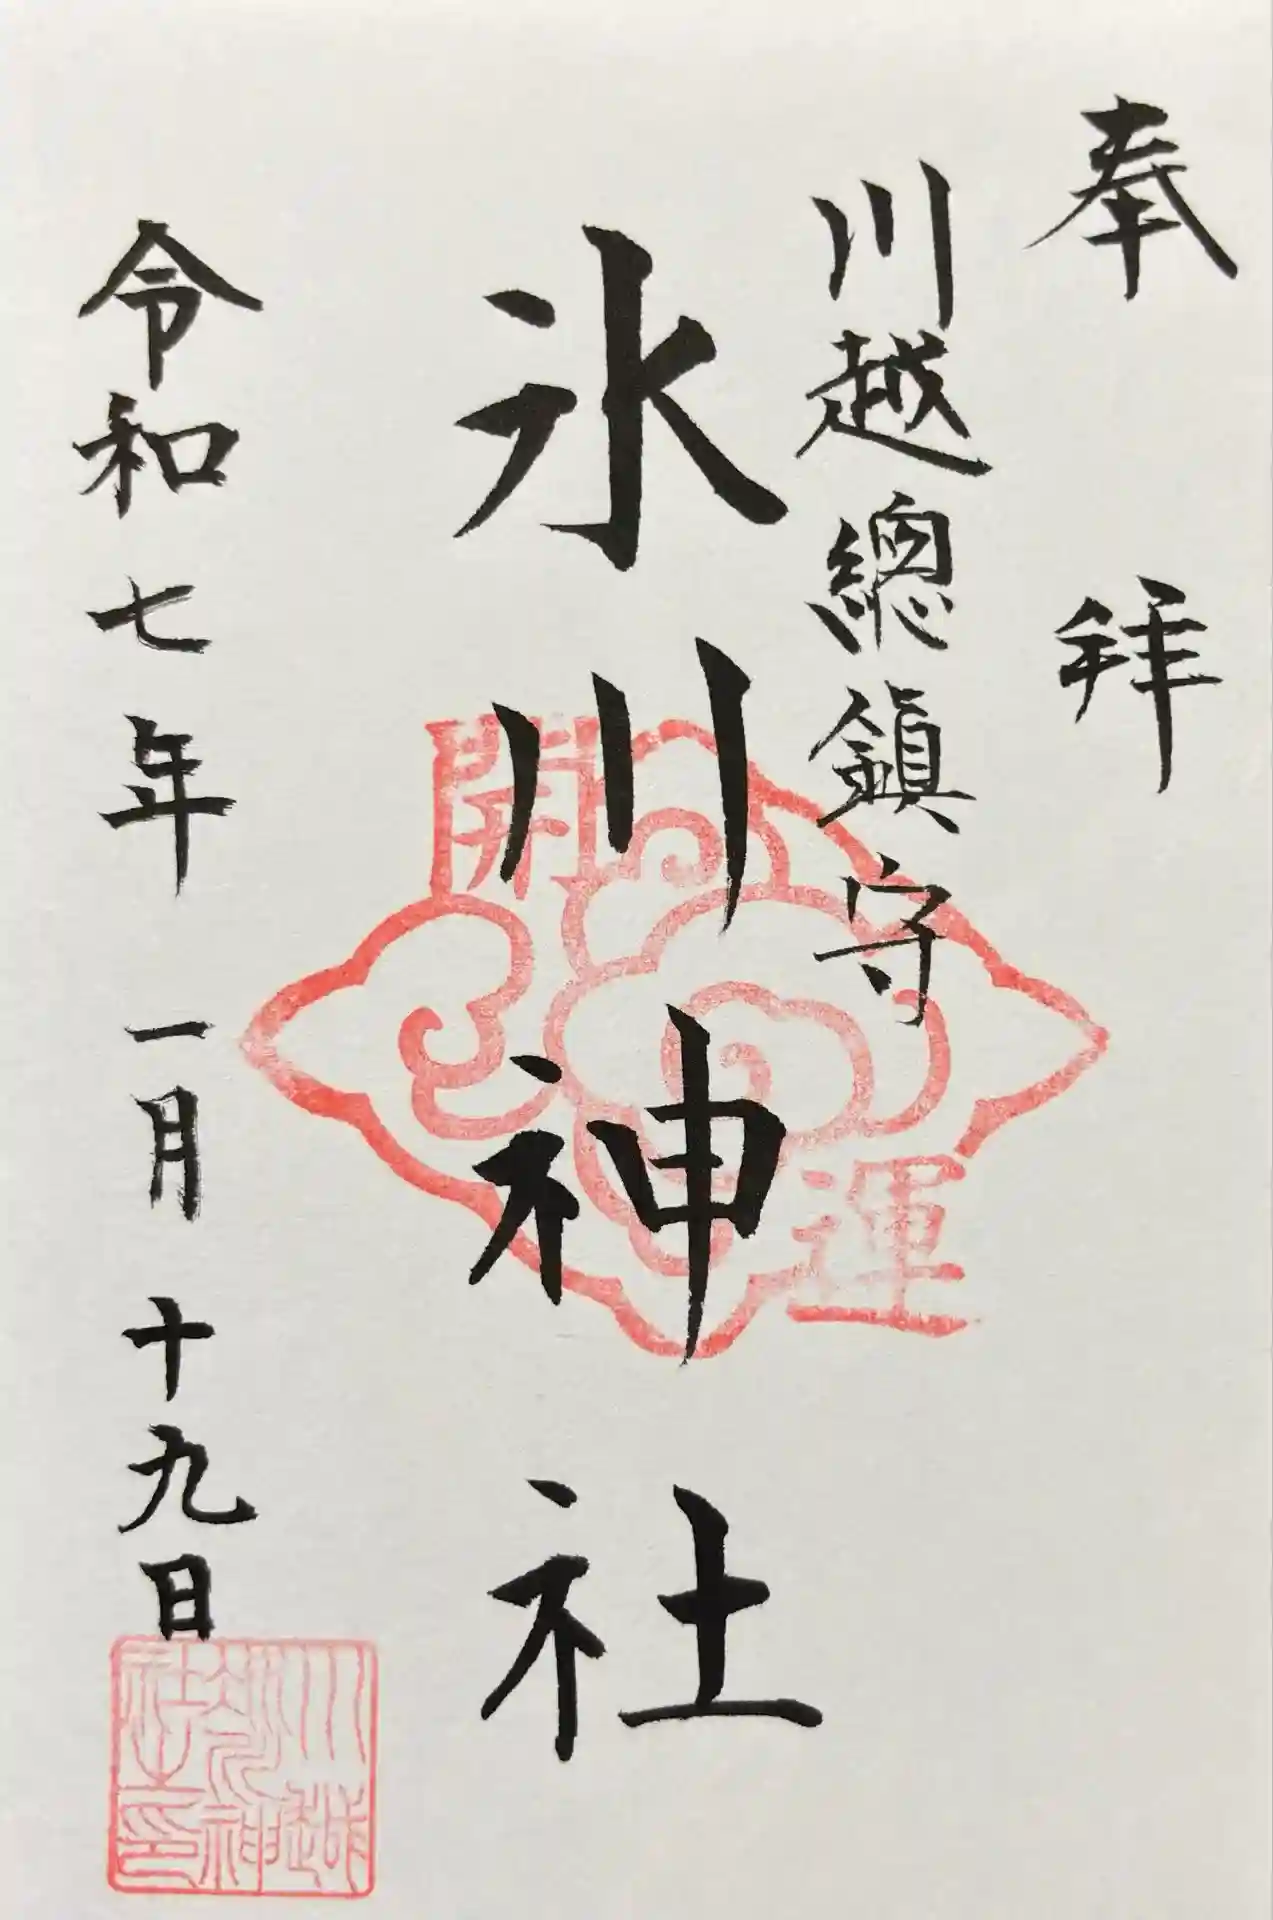 奉拜
川越總鎮守
氷川神社
開
運
令和七年一月十九日
川越
氷川神
社之印